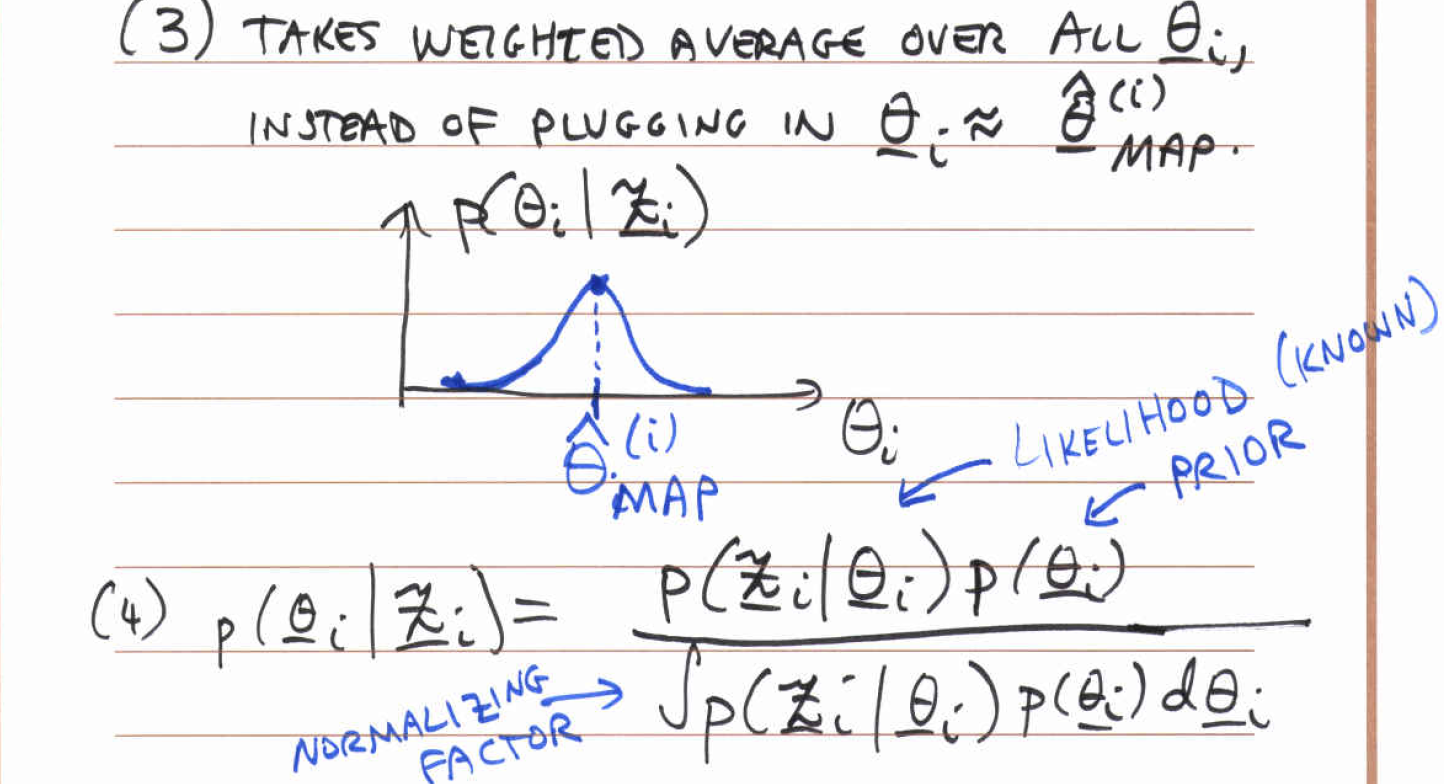 (3) TAKES WEIGHTED AVERAGE OVER ALL θ̲ᵢ,
INSTEAD OF PLUGGING IN θ̲ᵢ ≈ θ̲̂⁽ⁱ⁾ MAP.
p(θᵢ | z̲̃ᵢ)
θ̂⁽ⁱ⁾ MAP
θᵢ
LIKELIHOOD (KNOWN)
PRIOR
(4) p(θ̲ᵢ | z̲̃ᵢ) = p(z̲̃ᵢ | θ̲ᵢ) p(θ̲ᵢ)
NORMALIZING
FACTOR
∫p(z̲̃ᵢ | θ̲ᵢ) p(θ̲ᵢ) dθ̲ᵢ